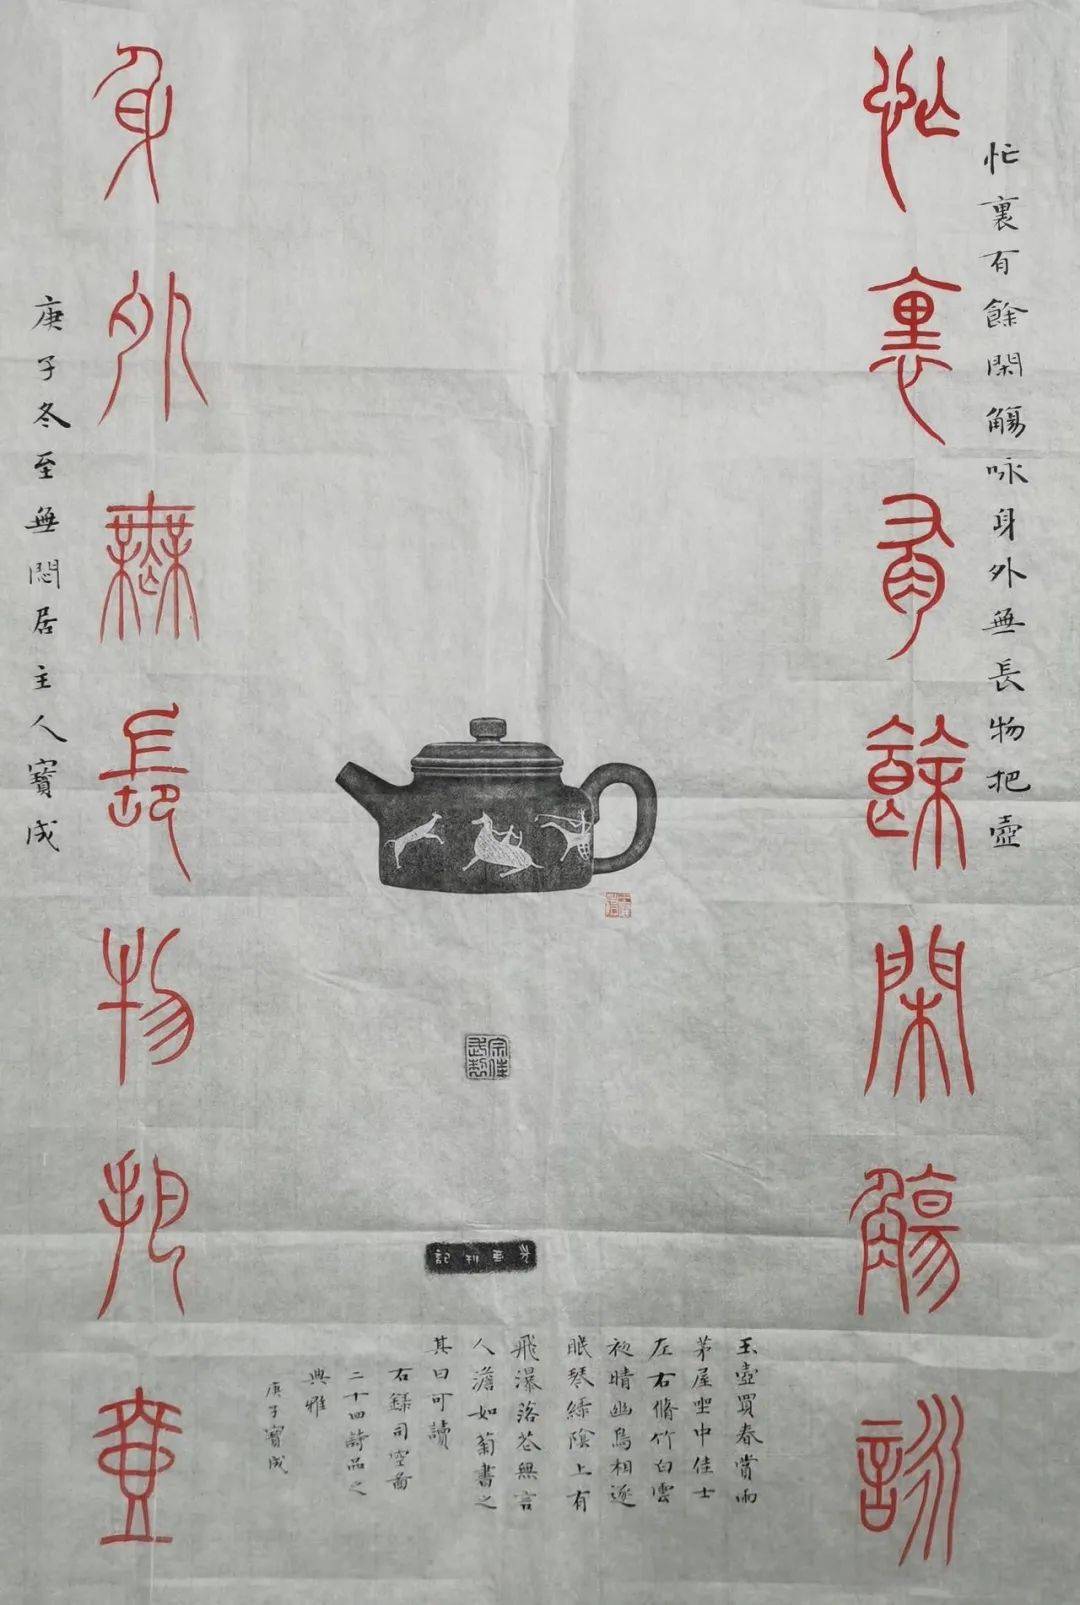 忙裏有餘閑觴詠
忙裏有餘閑觴咏身外無長物把壺
身外無長物把壺
庚子冬至無悶居主人寶成
玉壺買春賞雨
茅屋坐中佳士
左右脩竹白雲
初晴幽鳥相逐
眠琴綠陰上有
飛瀑落花無言
人澹如菊書之
其曰可讀
右錄司空啚
二十四詩品之
典雅
庚子寶成